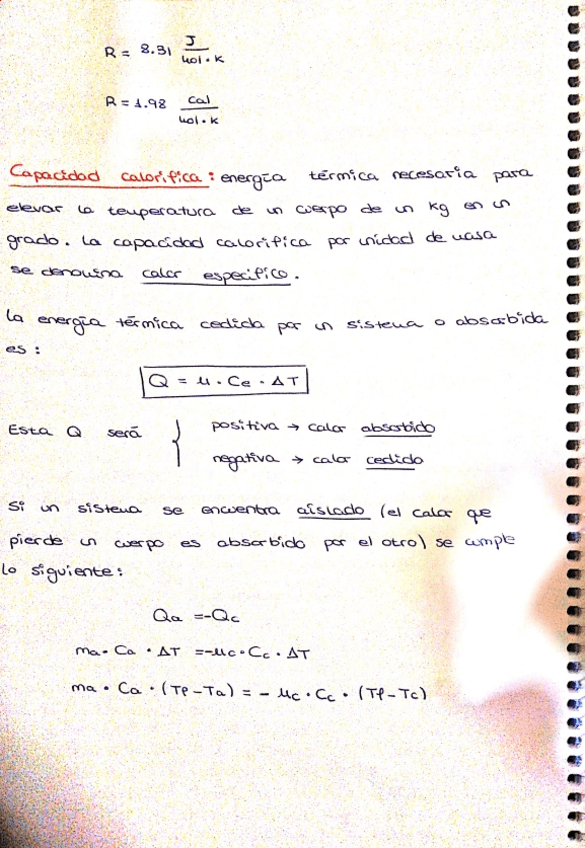 R = 8.31 J / mol · K
R = 1.98 Cal / mol · K
Capacidad calorífica: energía térmica necesaria para
elevar la temperatura de un cuerpo de un Kg en un
grado. La capacidad calorifica por unidad de masa
se denomina calor específico.
La energía térmica cedida por un sistema o absorbida
es:
Q = m · Ce · ΔT
Esta Q será { positiva → calor absorbido
negativa → calor cedido
Si un sistema se encuentra aislado (el calor que
pierde un cuerpo es absorbido por el otro) se cumple
lo siguiente:
Qa = -Qc
ma · Ca · ΔT = -mc · Cc · ΔT
ma · Ca · (Tf - Ta) = - mc · Cc · (Tf - Tc)